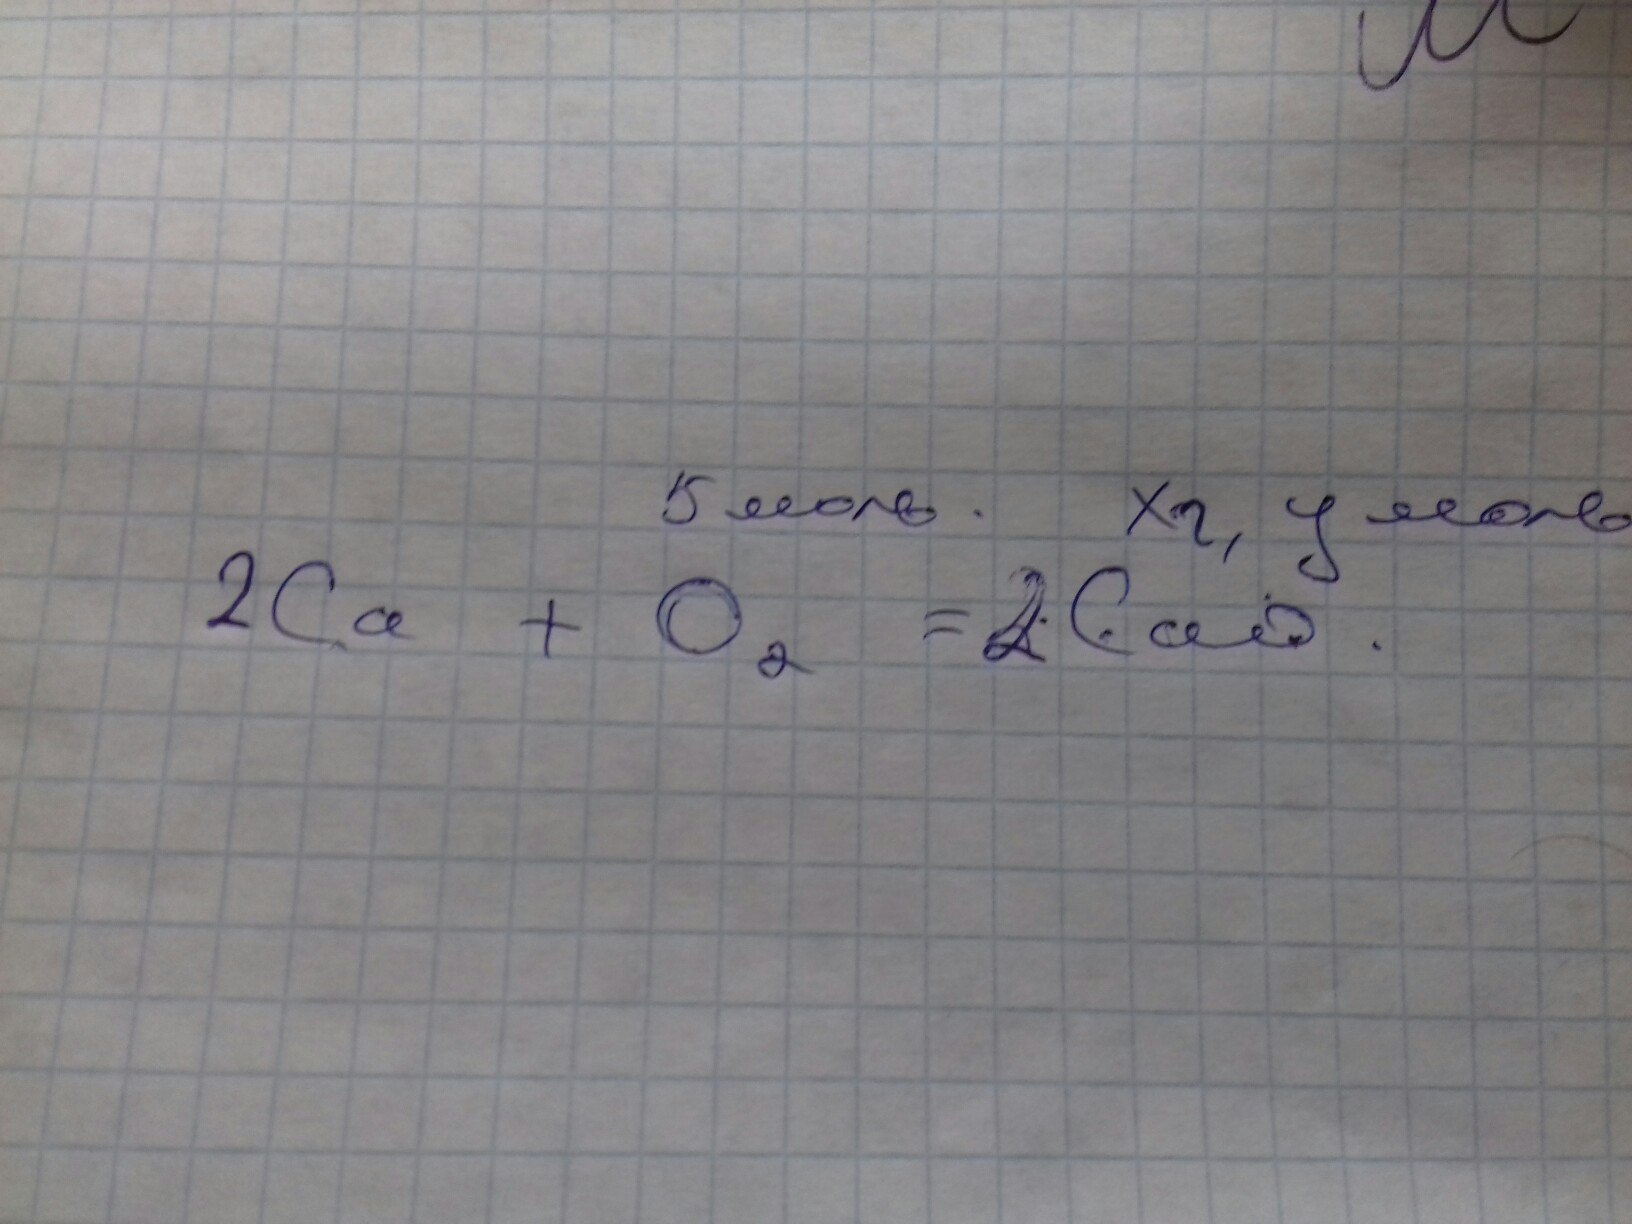 5 моль. xг, y моль
2Ca + O₂ = 2CaO.